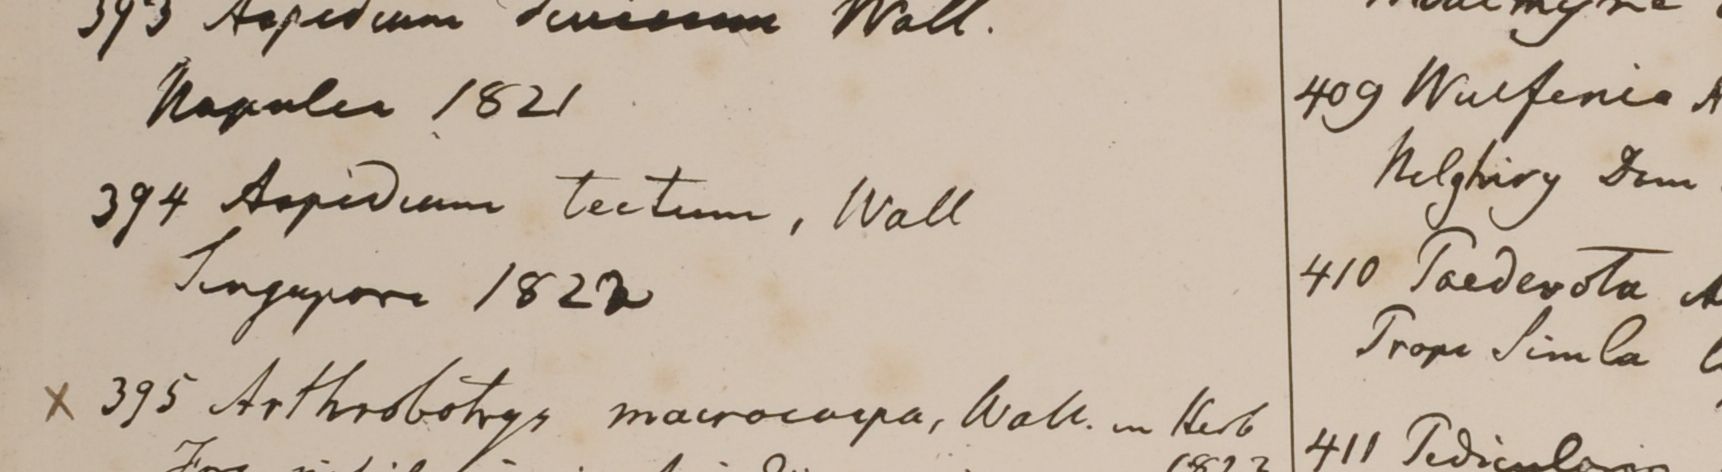 393 Aspidium Wall.
Napalia 1821
394 Aspidium tectum, Wall
Singapore 1822
X 395 Arthrobotrys macrocarpa, Wall. in Herb
1822
409 Wulfenia A
Nelghiry Dem
410 Paederota A
Prope Simla
411 Pedicularis